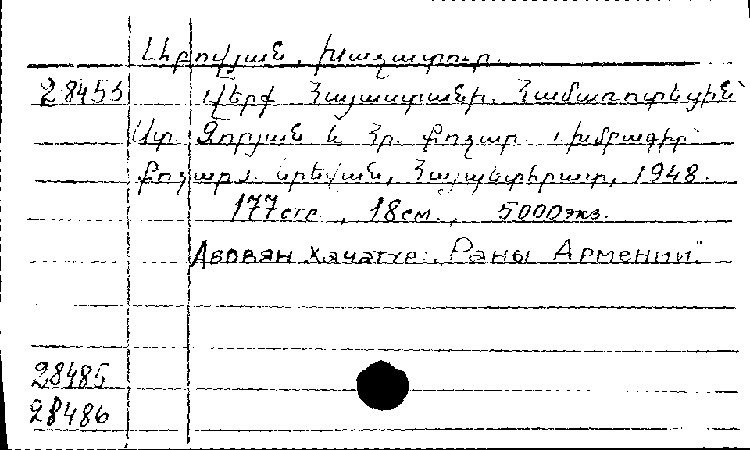 Աբովյան, Խաչատուր.
28455 Վերք Հայաստանի. Համառոտեցին՝
Ստ. Զորյան և Հր. Քոչար. Խմբագիր՝
Քոչար Հ. Երևան, Հայպետհրատ, 1948.
177стр., 18см., 5000экз.
Абовян Хачатур: „Раны Армении."
28485
28486